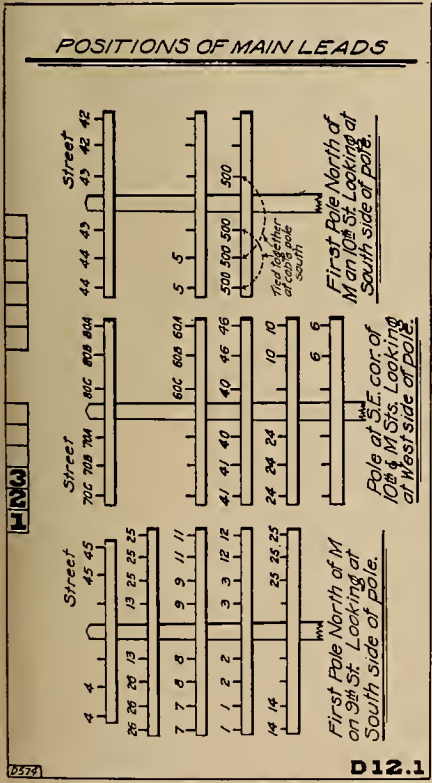 POSITIONS OF MAIN LEADS
Street
44 44 43 43 42 42
5 5
500 500 500 500
Tied together
at cab'a pole
south
First Pole North of
M an 10th St. Looking at
South side of pole.
Street
70C 70B 70A 80C 80B 80A
60C 60B 60A
41 41 40 40 46 46
24 24 24 10 10
6 6
Pole at S.E. cor. of
10th & M Sts. Looking
at West side of pole.
Street
4 4 45 45
26 26 26 13 13 25 25 25
7 7 8 8 9 9 11 11
1 1 2 2 3 3 12 12
14 14 25 25 25
First Pole North of M
on 9th St. Looking at
South side of pole.
D574
D12.1